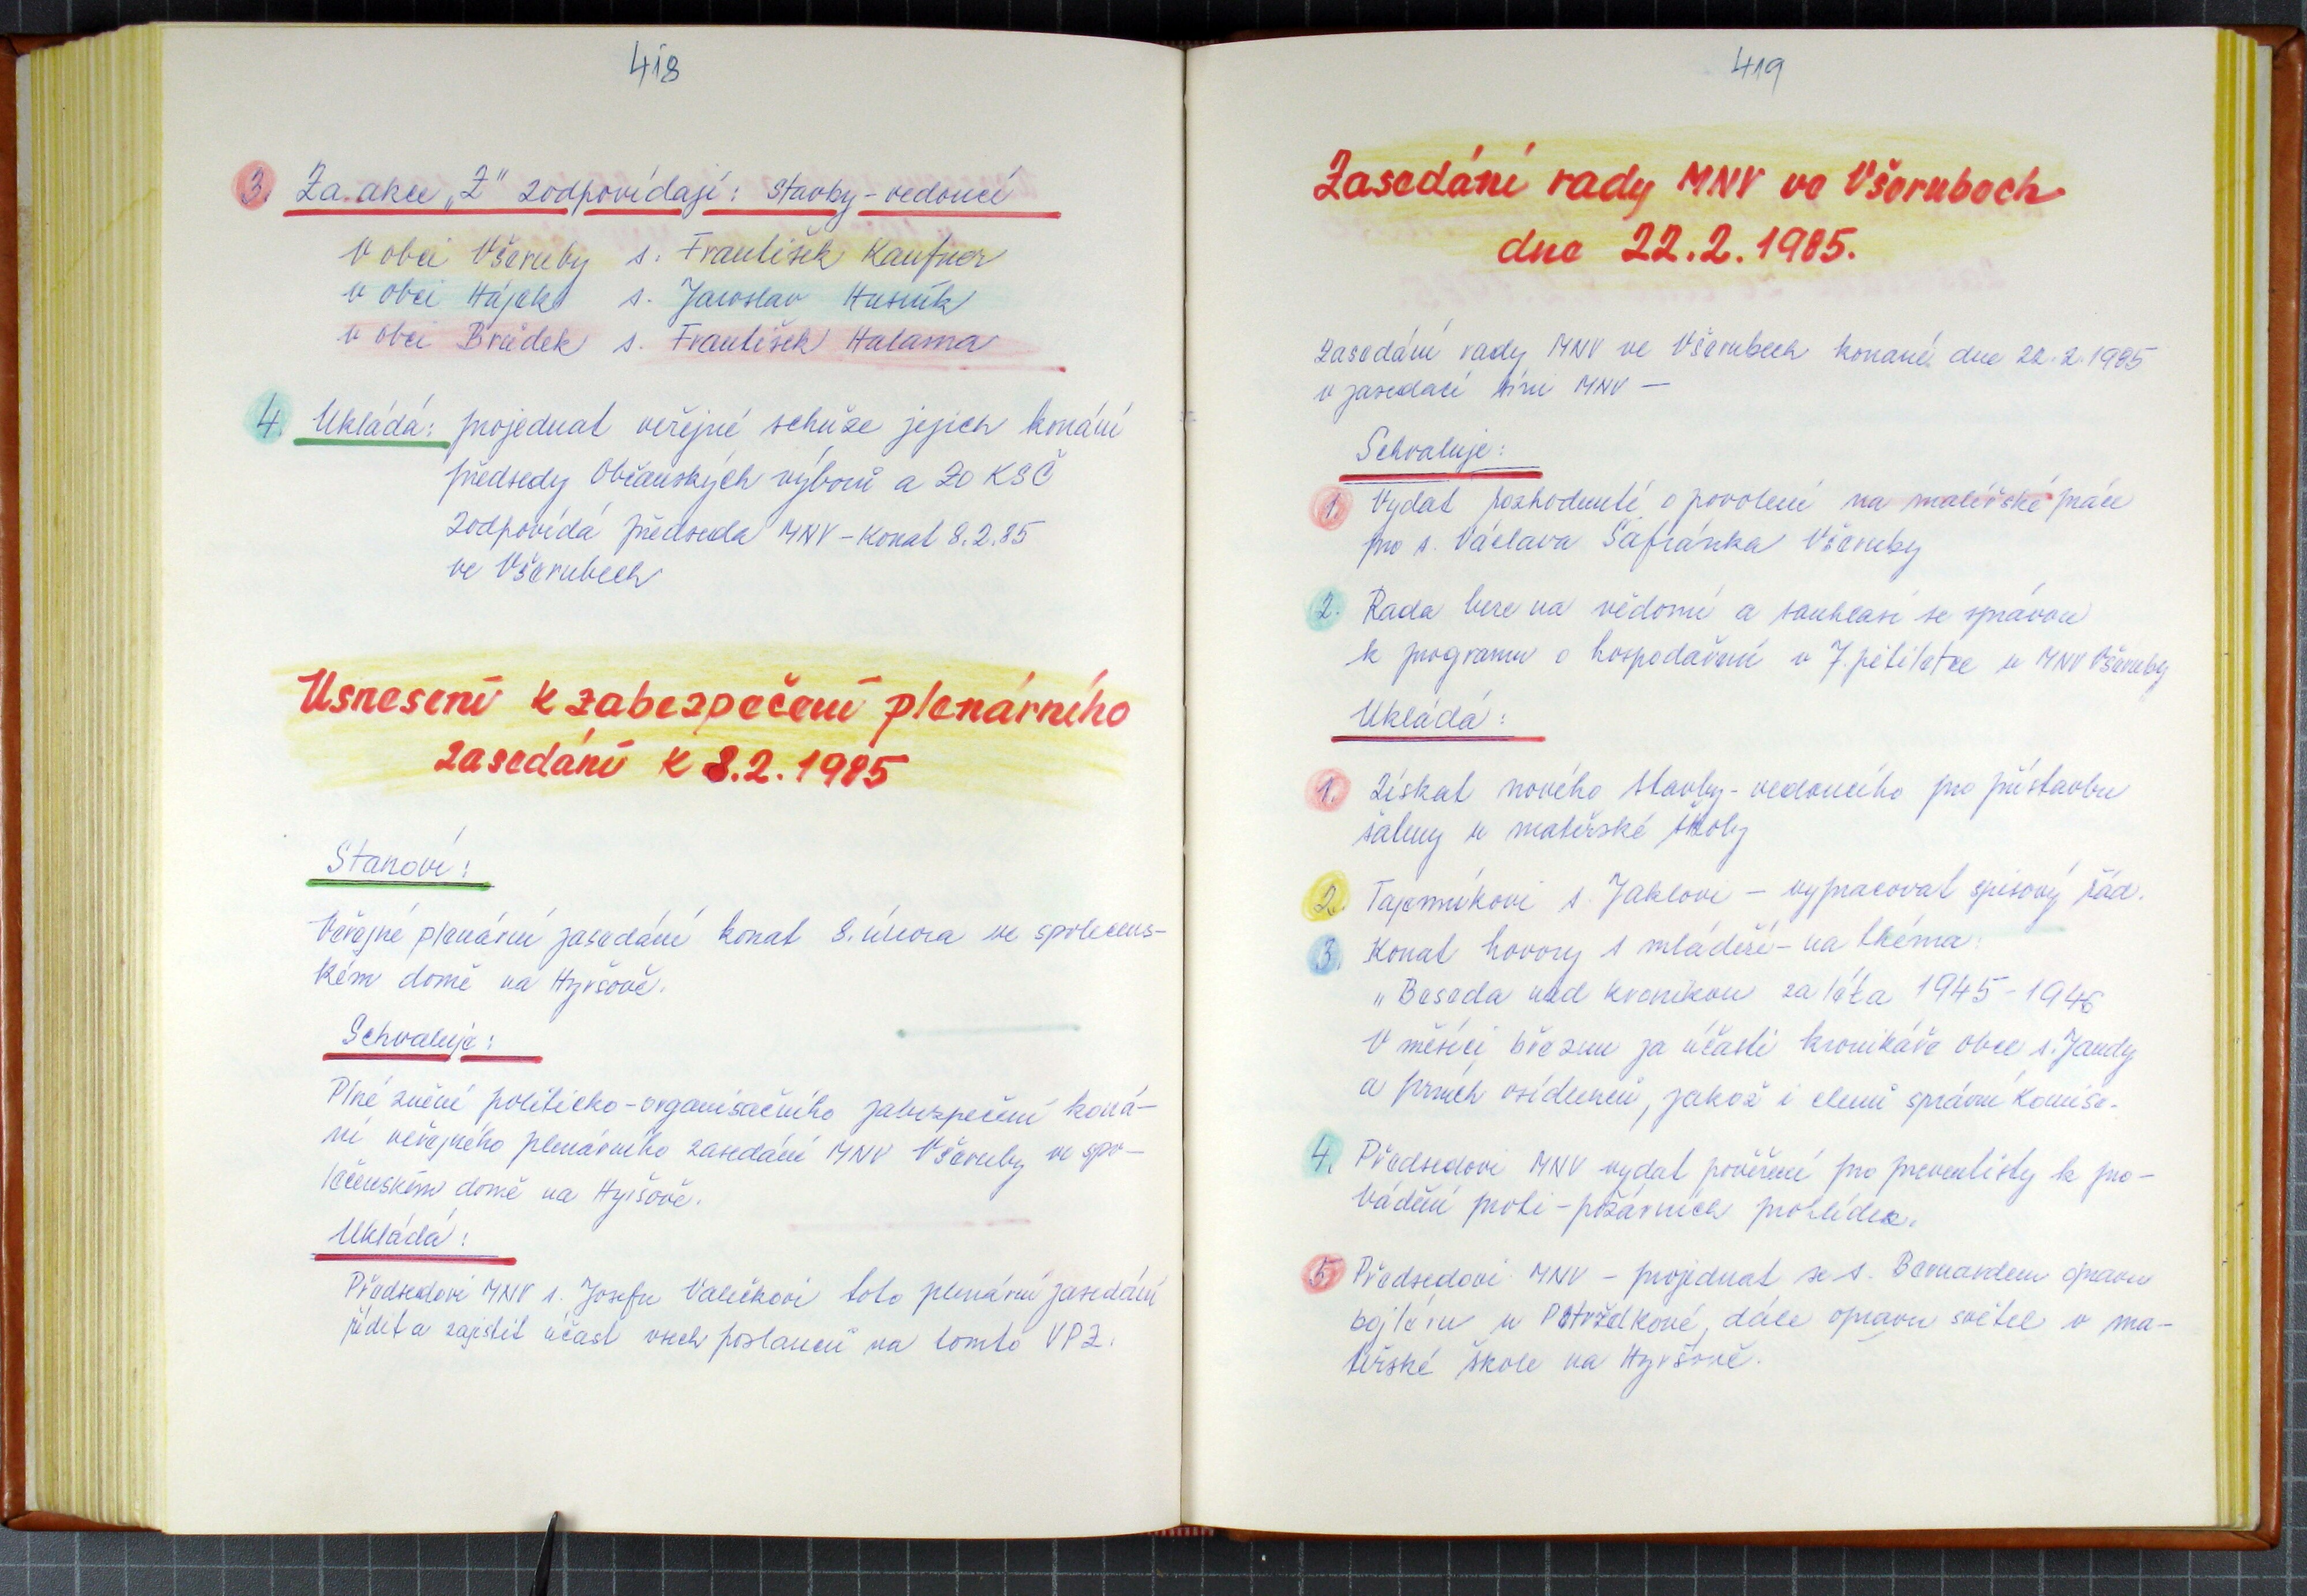 418
3. Za akce „Z" zodpovídají: stavby-vedoucí
V obci Všeruby s. František Kaufner
v obci Hájek s. Jaroslav Husník
v obci Brůdek s. František Halama
4. Ukládá: projednat veřejné schůze jejich konání
předsedy Občanských výborů a ZO KSČ
zodpovídá předseda MNV - konat 8.2.85
ve Všerubech
Usnesení k zabezpečení plenárního
zasedání k 8.2.1985
Stanoví:
Veřejné plenární zasedání konat 8. února ve společens-
kém domě na Hyršově.
Schvaluje:
Plné znění politicko-organisačního zabezpečení koná-
ní veřejného plenárního zasedání MNV Všeruby ve spo-
lečenském domě na Hyršově.
Ukládá:
Předsedovi MNV s. Josefu Valečkovi toto plenární zasedání
řídit a zajistit účast všech poslanců na tomto VPZ.
419
Zasedání rady MNV ve Všerubech
dne 22.2.1985.
Zasedání rady MNV ve Všerubech konané dne 22.2.1985
v zasedací síni MNV —
Schvaluje:
1. Vydat rozhodnutí o povolení na malířské práce
pro s. Václava Šafránka Všeruby
2. Rada bere na vědomí a souhlasí se správou
k programu o hospodaření v 7. pětiletce u MNV Všeruby
Ukládá:
1. Získat nového stavby-vedoucího pro přístavbu
šatny u mateřské školy
2. Tajemníkovi s. Jaklovi - vypracovat spisový řád.
3. Konat hovory s mládeží - na théma:
„Beseda nad kronikou za léta 1945-1946
V měsíci březnu za účasti kronikáře obce s. Jandy
a prvních osídlenců, jakož i členů správní komise.
4. Předsedovi MNV vydat pověření pro preventisty k pro-
vádění proti-požárních prohlídek.
5. Předsedovi MNV - projednat se s. Bernardem opravu
bojleru u Petržélkové, dále opravu světel v ma-
teřské škole na Hyršově.